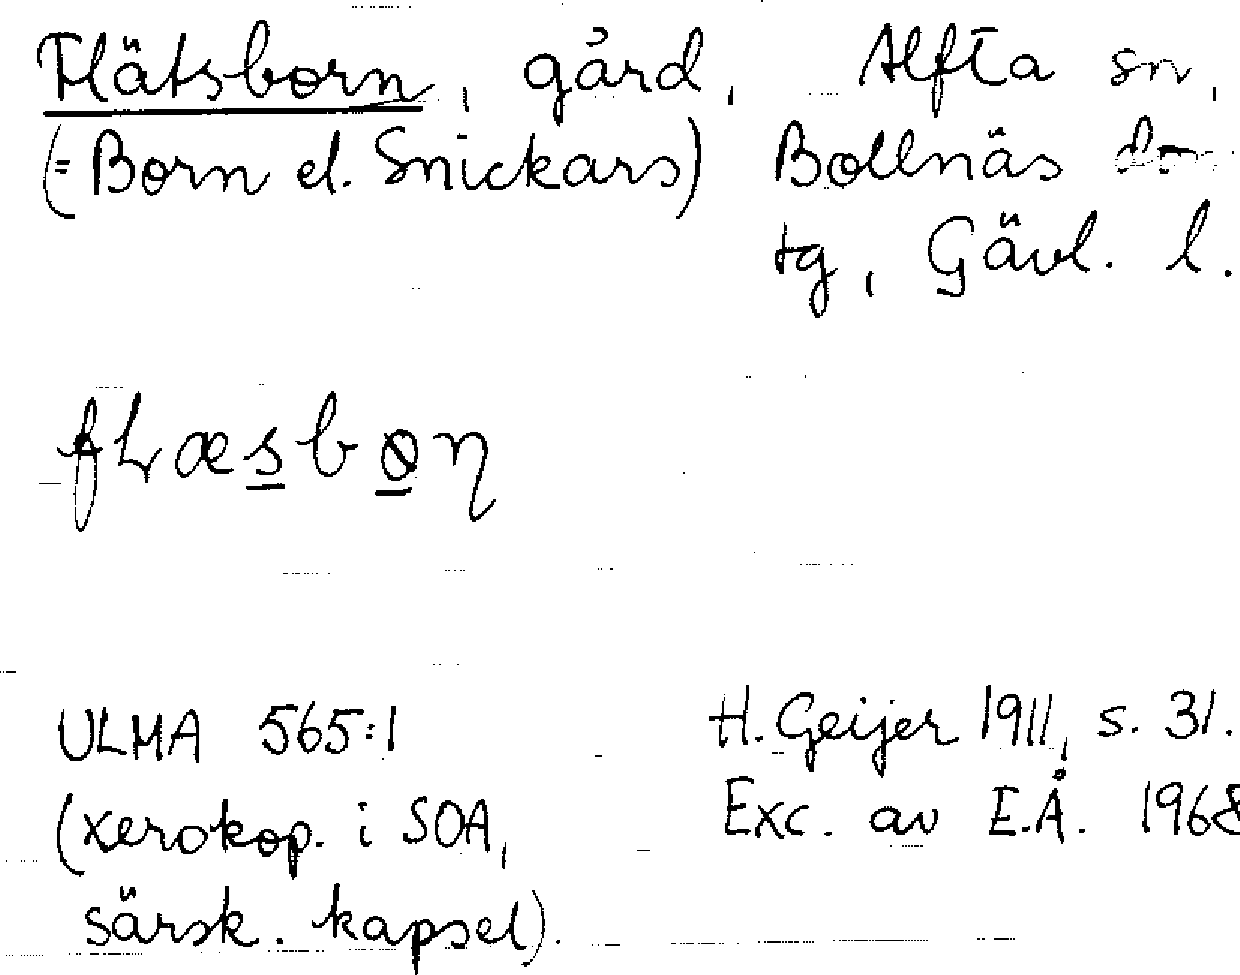 Flätsborn, gård, Alfta sn,
(= Born el. Snickars) Bollnäs
tg, Gävl. l.
ULMA 565:1 H. Geijer 1911, s. 31.
(xerokop. i SOA, Exc. av E.Å. 1968
särsk. kapsel).